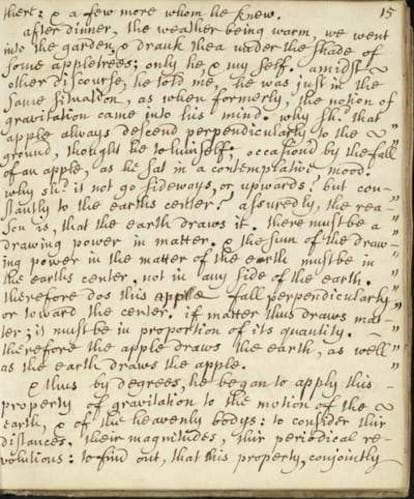 there: & a few more whom he knew. 15
after dinner, the weather being warm, we went
into the garden, & drank thea under the shade of
some appletrees; only he, & my self. amidst
other discourse, he told me, he was just in the
same situation, as when formerly, the notion of
gravitation came into his mind. why sh.d that
apple always descend perpendicularly to the
ground, thought he to himself; occasion'd by the fall
of an apple, as he sat in a contemplative mood.
why sh.d it not go sideways, or upwards? but con-
stantly to the earths center? assuredly, the rea-
son is, that the earth draws it. there must be a
drawing power in matter. & the sum of the draw-
ing power in the matter of the earth must be in
the earths center, not in any side of the earth.
therefore dos this apple fall perpendicularly
or toward the center. if matter thus draws mat-
ter; it must be in proportion of its quantity.
therefore the apple draws the earth, as well
as the earth draws the apple.
& thus by degrees, he began to apply this
property of gravitation to the motion of the
earth, & of the heavenly bodys: to consider thir
distances, their magnitudes, thir periodical re-
volutions: to find out, that this property, conjointly